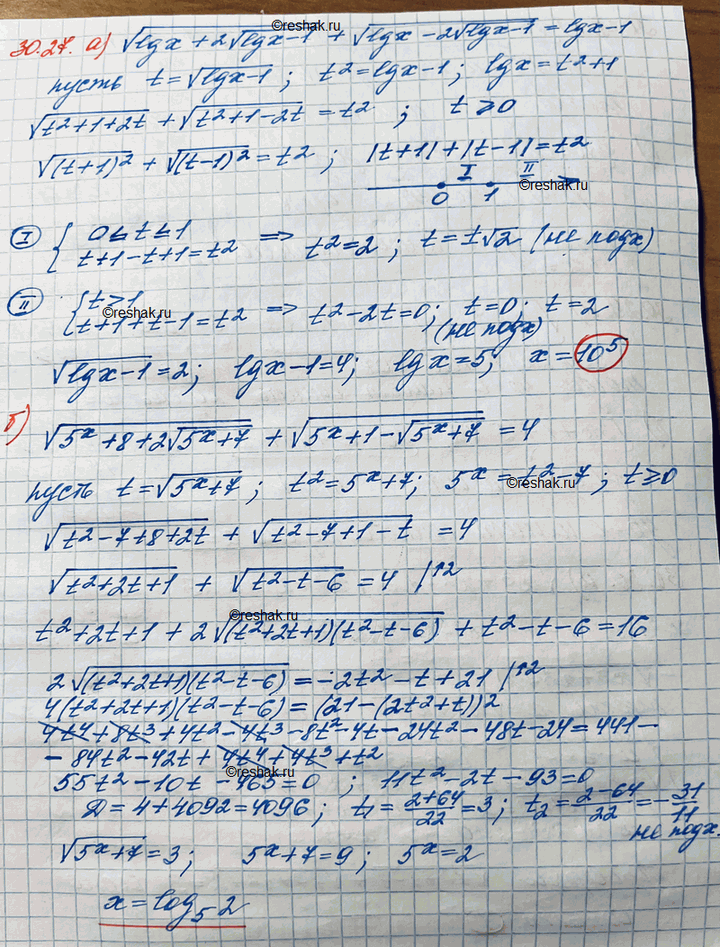 ©reshak.ru
30.27. а) √(lgx + 2√(lgx-1)) + √(lgx - 2√(lgx-1)) = lgx-1
пусть t = √(lgx-1) ; t² = lgx-1 ; lgx = t²+1
√(t²+1+2t) + √(t²+1-2t) = t² ; t ≥ 0
√((t+1)²) + √((t-1)²) = t² ; |t+1|+|t-1| = t²
I II
©reshak.ru
0 1
I { 0≤t≤1 t+1-t+1=t² => t²=2 ; t=±√2 (не подх)
II { t>1 t+1+t-1=t² => t²-2t=0; t=0; t=2
©reshak.ru
(не подх)
√(lgx-1) = 2; lgx-1=4; lgx=5, x=10⁵
б) √(5ˣ+8+2√(5ˣ+7)) + √(5ˣ+1-√(5ˣ+7)) = 4
©reshak.ru
пусть t=√(5ˣ+7) ; t²=5ˣ+7; 5ˣ=t²-7 ; t≥0
©reshak.ru
√(t²-7+8+2t) + √(t²-7+1-t) = 4
√(t²+2t+1) + √(t²-t-6) = 4 |↑2
©reshak.ru
t²+2t+1 + 2√((t²+2t+1)(t²-t-6)) + t²-t-6=16
2√((t²+2t+1)(t²-t-6)) = -2t²-t+21 |↑2
4(t²+2t+1)(t²-t-6) = (21-(2t²+t))²
4t⁴+8t³+4t²-4t³-8t²-4t-24t²-48t-24=441-
-84t²-42t+4t⁴+4t³+t²
55t²-10t-465=0 ; 11t²-2t-93=0
D=4+4092=4096; t₁=(2+64)/22=3; t₂=(2-64)/22=-31/11
не подх.
√(5ˣ+7)=3; 5ˣ+7=9; 5ˣ=2
©reshak.ru
x=log₅2